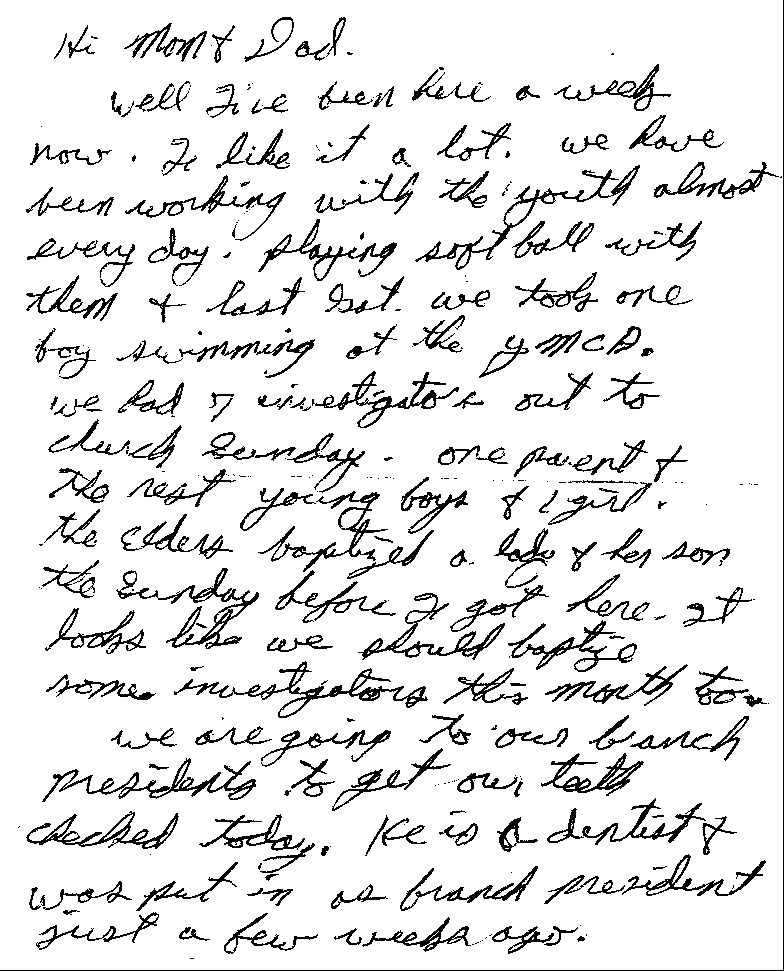 Hi Mom & Dad.
well I've been here a week
now. I like it a lot. we have
been working with the youth almost
every day. playing softball with
them & last Sat. we took one
boy swimming at the YMCA.
we had 7 investigators out to
church Sunday. one parent &
the rest young boys & 1 girl.
the Elders baptized a lady & her son
the Sunday before I got here. It
looks like we should baptize
some investigators this month too.
we are going to our branch
presidents to get our teeth
checked today. He is a dentist &
was put in as branch president
just a few weeks ago.